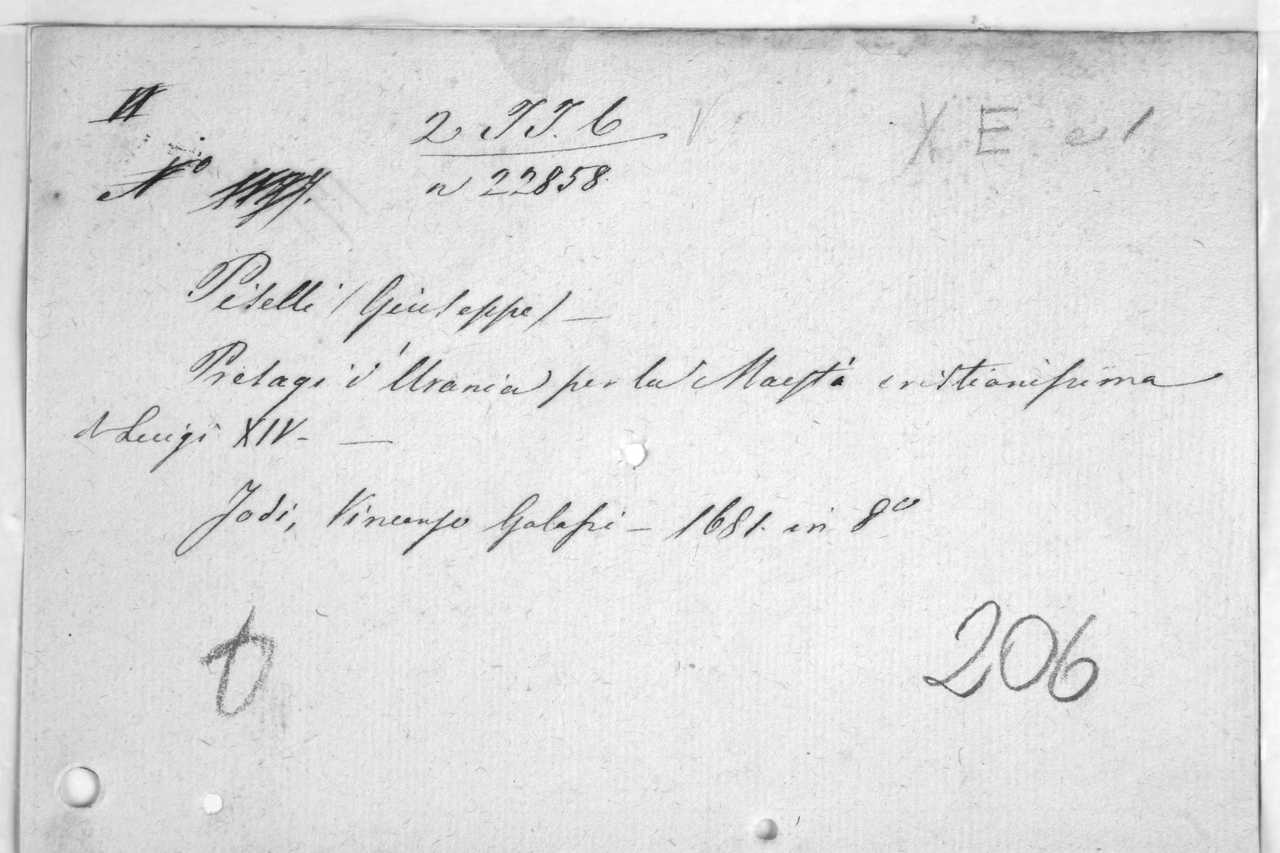 VI
2 TT. 6
V
X E
No
n 22858
Piselli (Giuseppe) —
Presagi d'Urania per la Maestà cristianissima
di Luigi XIV - —
Jodi, Vincenzo Galassi — 1681. in 8o
206